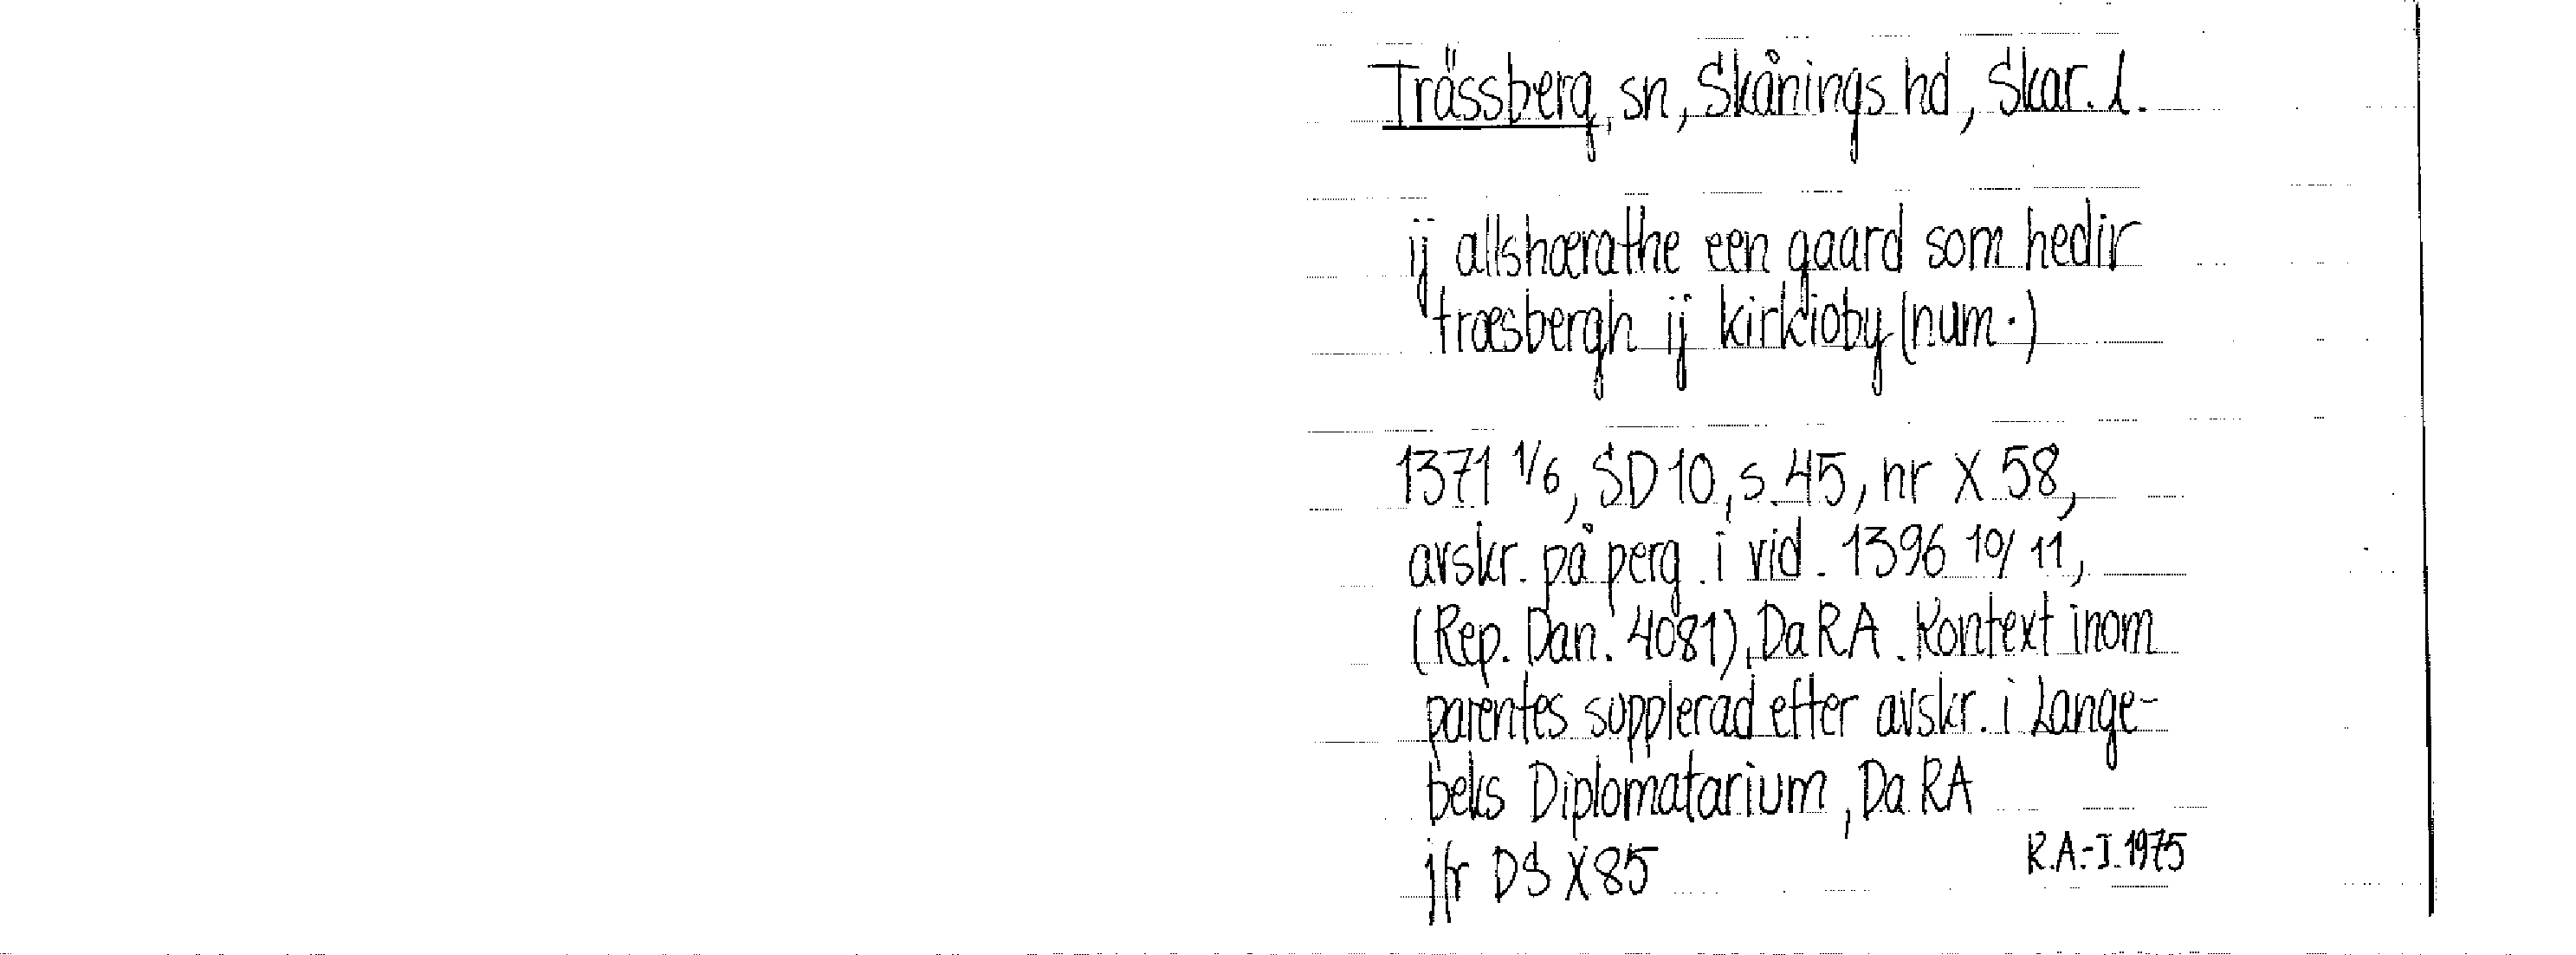 Trässberg, sn, Skånings hd, Skar. l.
ij allshærathe een gaard som hedir
træsbergh ij kirkioby (num.)
1371 1/6, SD 10, s. 45, nr X 58,
avskr. på perg. i vid. 1396 10/11,
(Rep. Dan. 4081), DaRA. Kontext inom
parentes supplerad efter avskr. i Lange-
beks Diplomatarium, DaRA
jfr DS X 85
R.A.-I. 1975